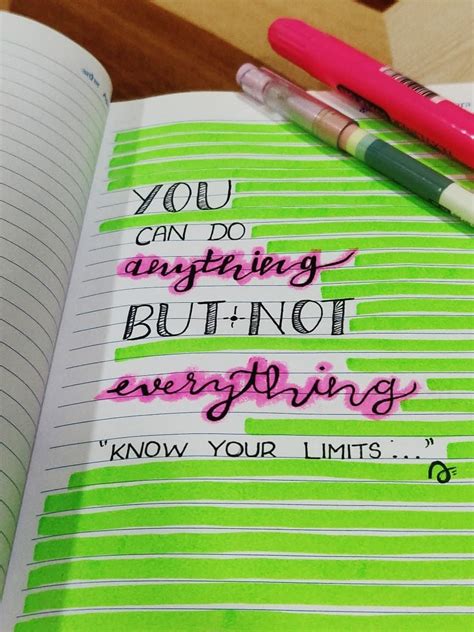 YOU
CAN DO
anything
BUT NOT
everything
"KNOW YOUR LIMITS..."